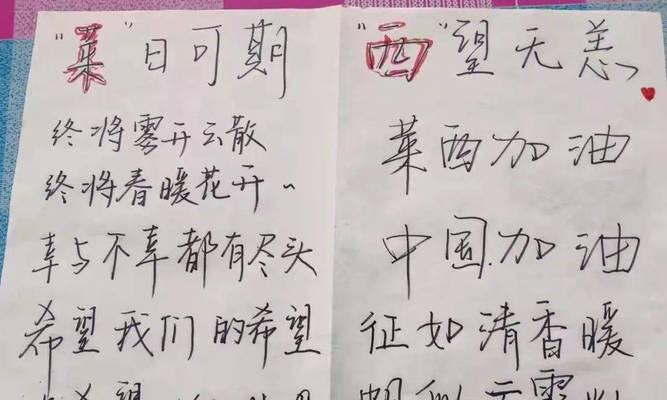 "莱"日可期
终将雾开云散
终将春暖花开..
幸与不幸都有尽头
希望我们的希望
"西"望无恙
莱西加油
中国.加油
征如清香暖